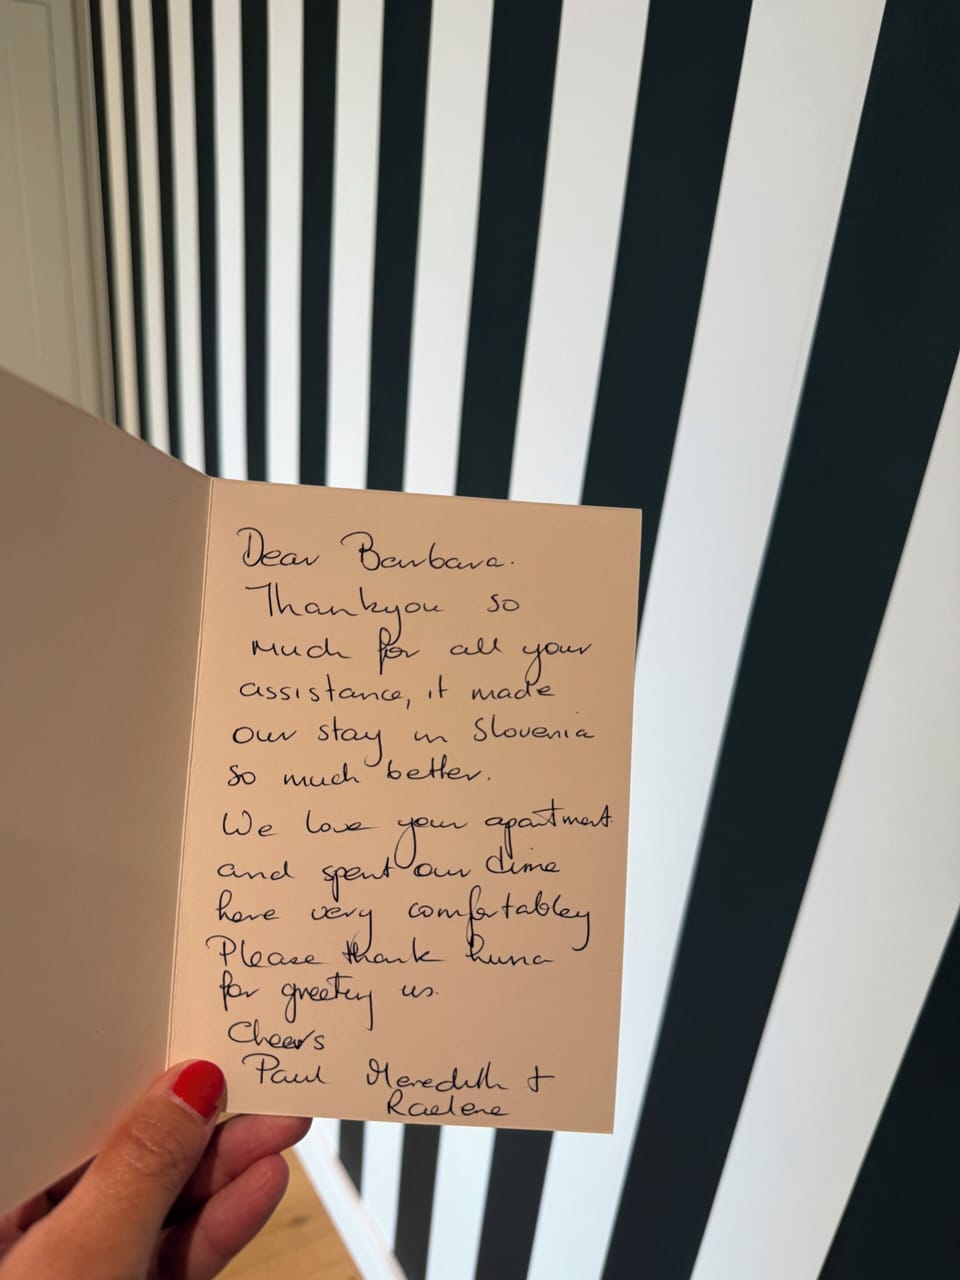 Dear Barbara.
Thankyou so
much for all your
assistance, it made
our stay in Slovenia
so much better.
We love your apartment
and spent our time
here very comfortabley
Please thank
for greeting us.
Cheers
Paul Meredith &
Raelene